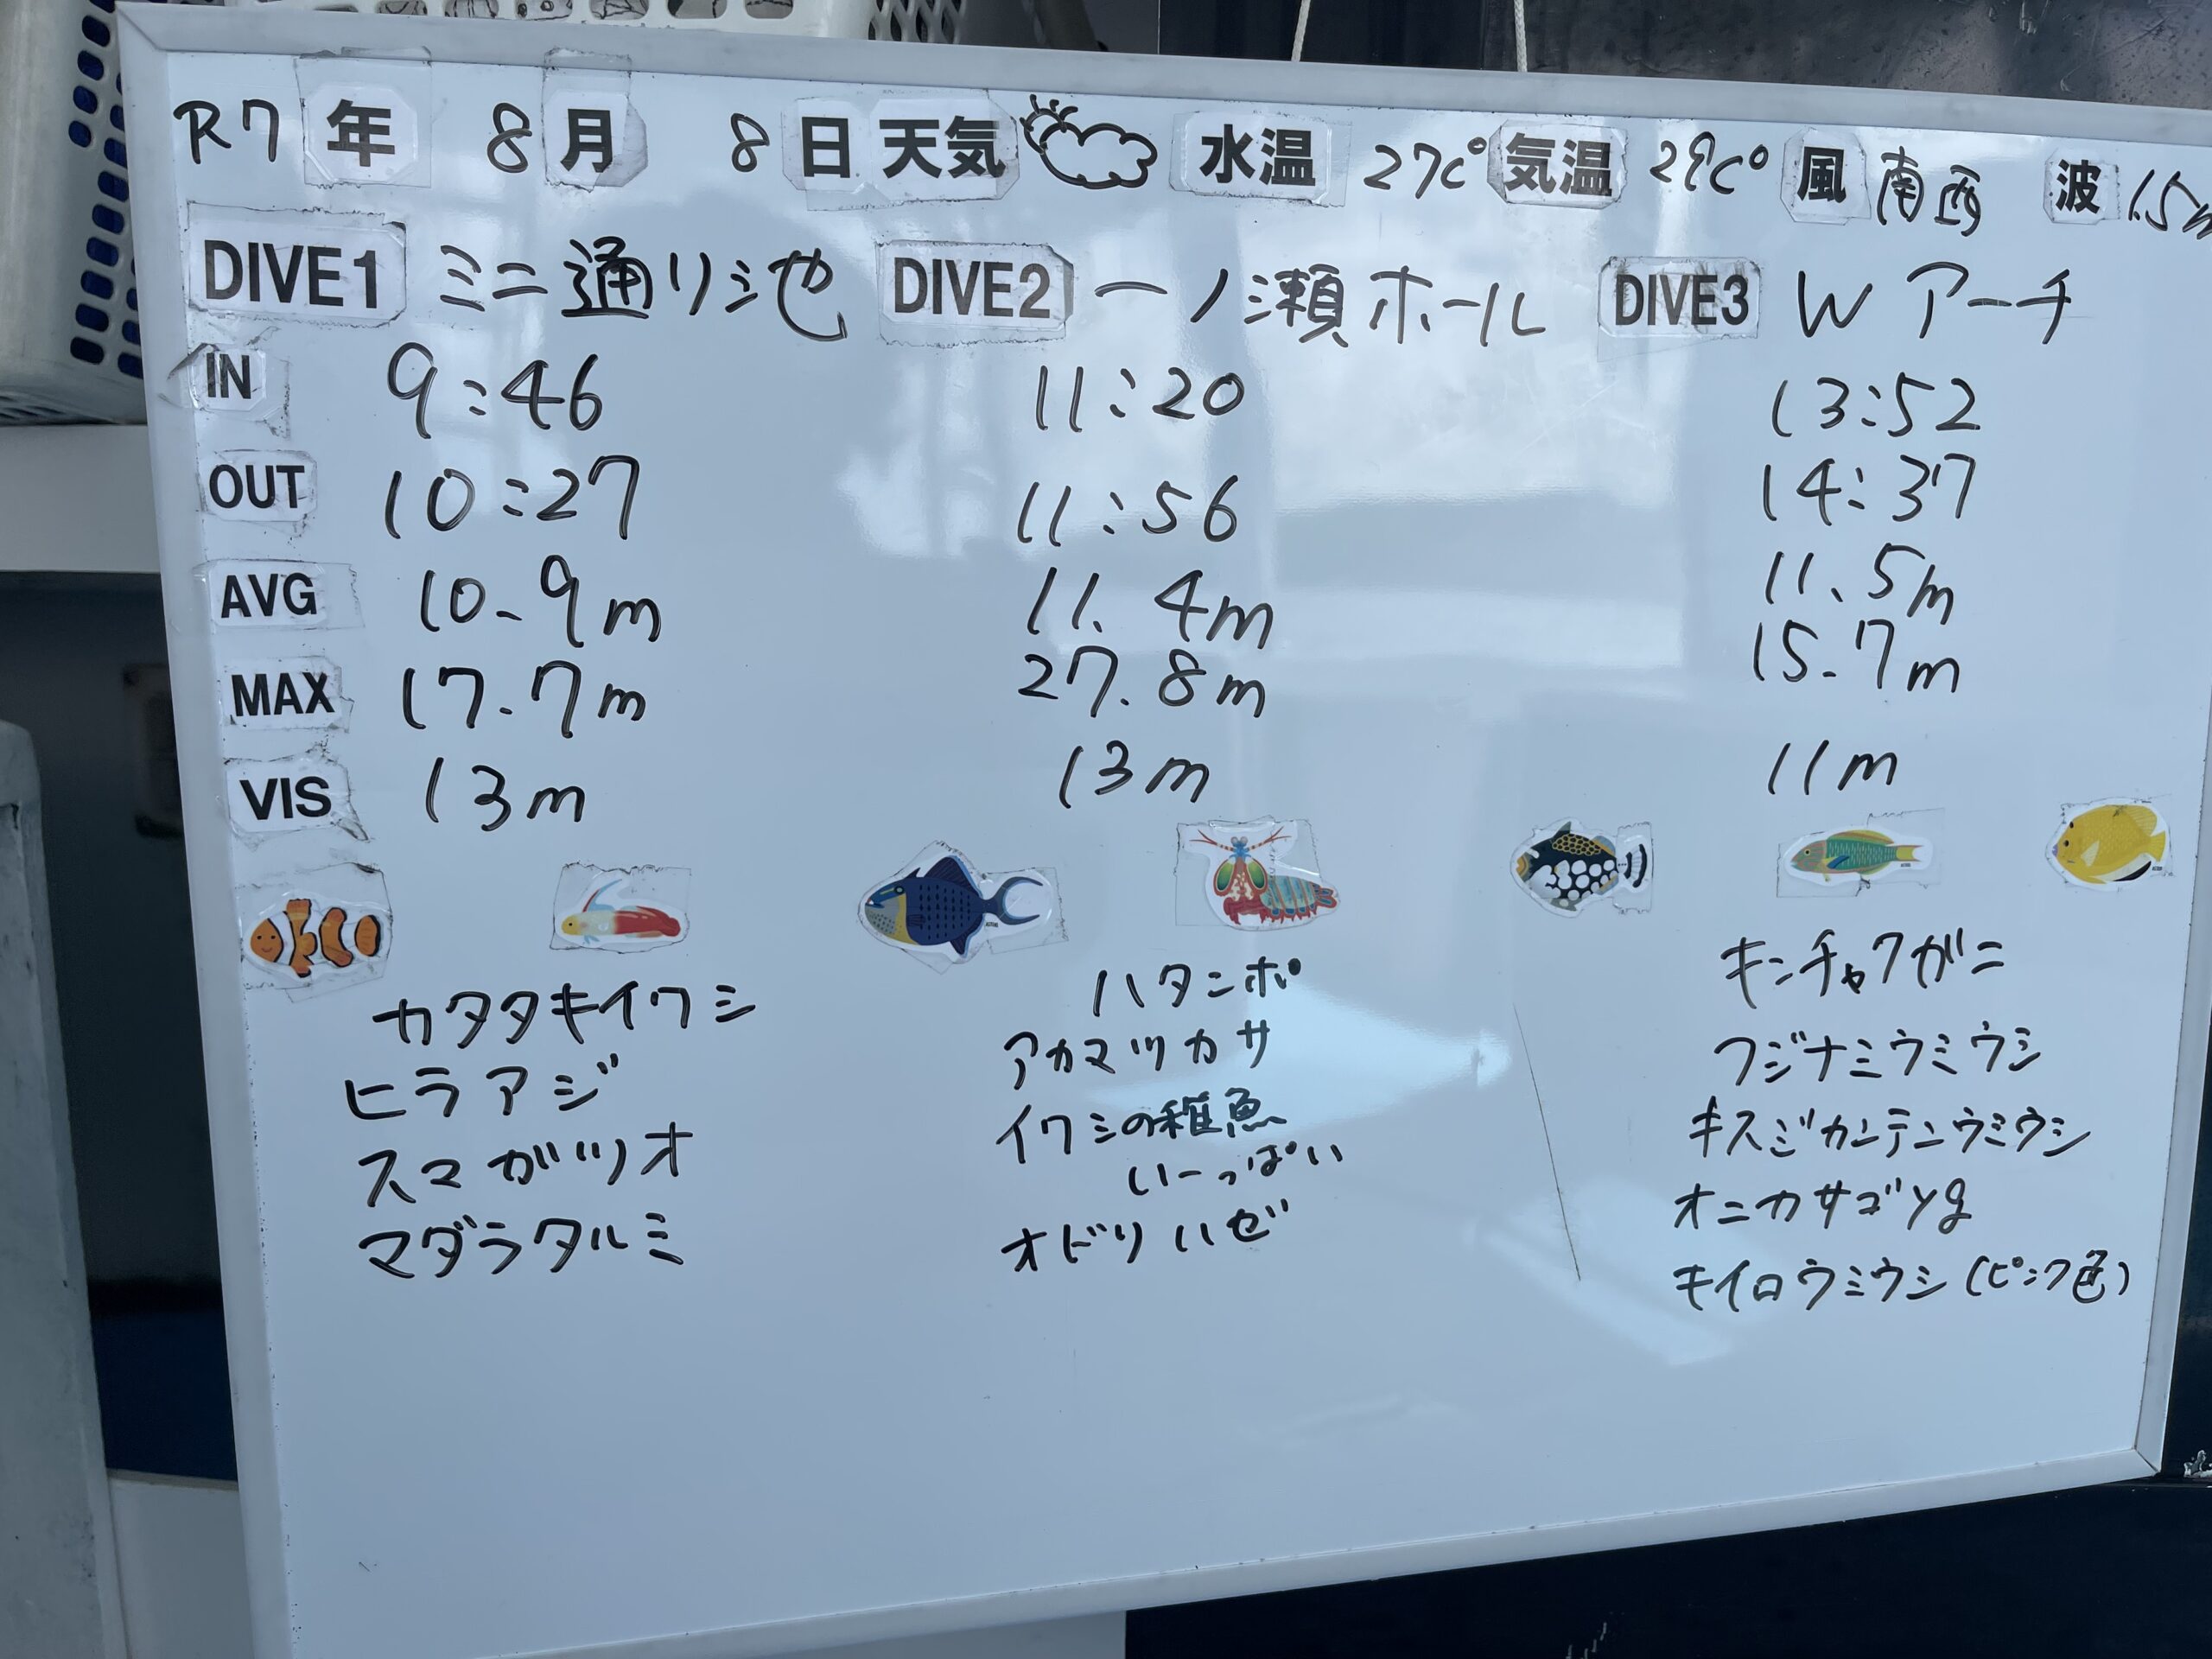 R7年 8月 8日 天気 水温 27c° 気温 29c° 風 南西 波 1.5m
DIVE1 ミニ通り池 DIVE2 一ノ瀬ホール DIVE3 Wアーチ
IN 9:46 11:20 13:52
OUT 10:27 11:56 14:37
AVG 10.9m 11.4m 11.5m
MAX 17.7m 27.8m 15.7m
VIS 13m 13m 11m
カタタキイワシ
ヒラアジ
スマガツオ
マダラタルミ
ハタンポ
アカマツカサ
イワシの稚魚
いーっぱい
オドリハゼ
キンチャクガニ
フジナミウミウシ
キスジカンテンウミウシ
オニカサゴyg
キイロウミウシ(ピンク色)